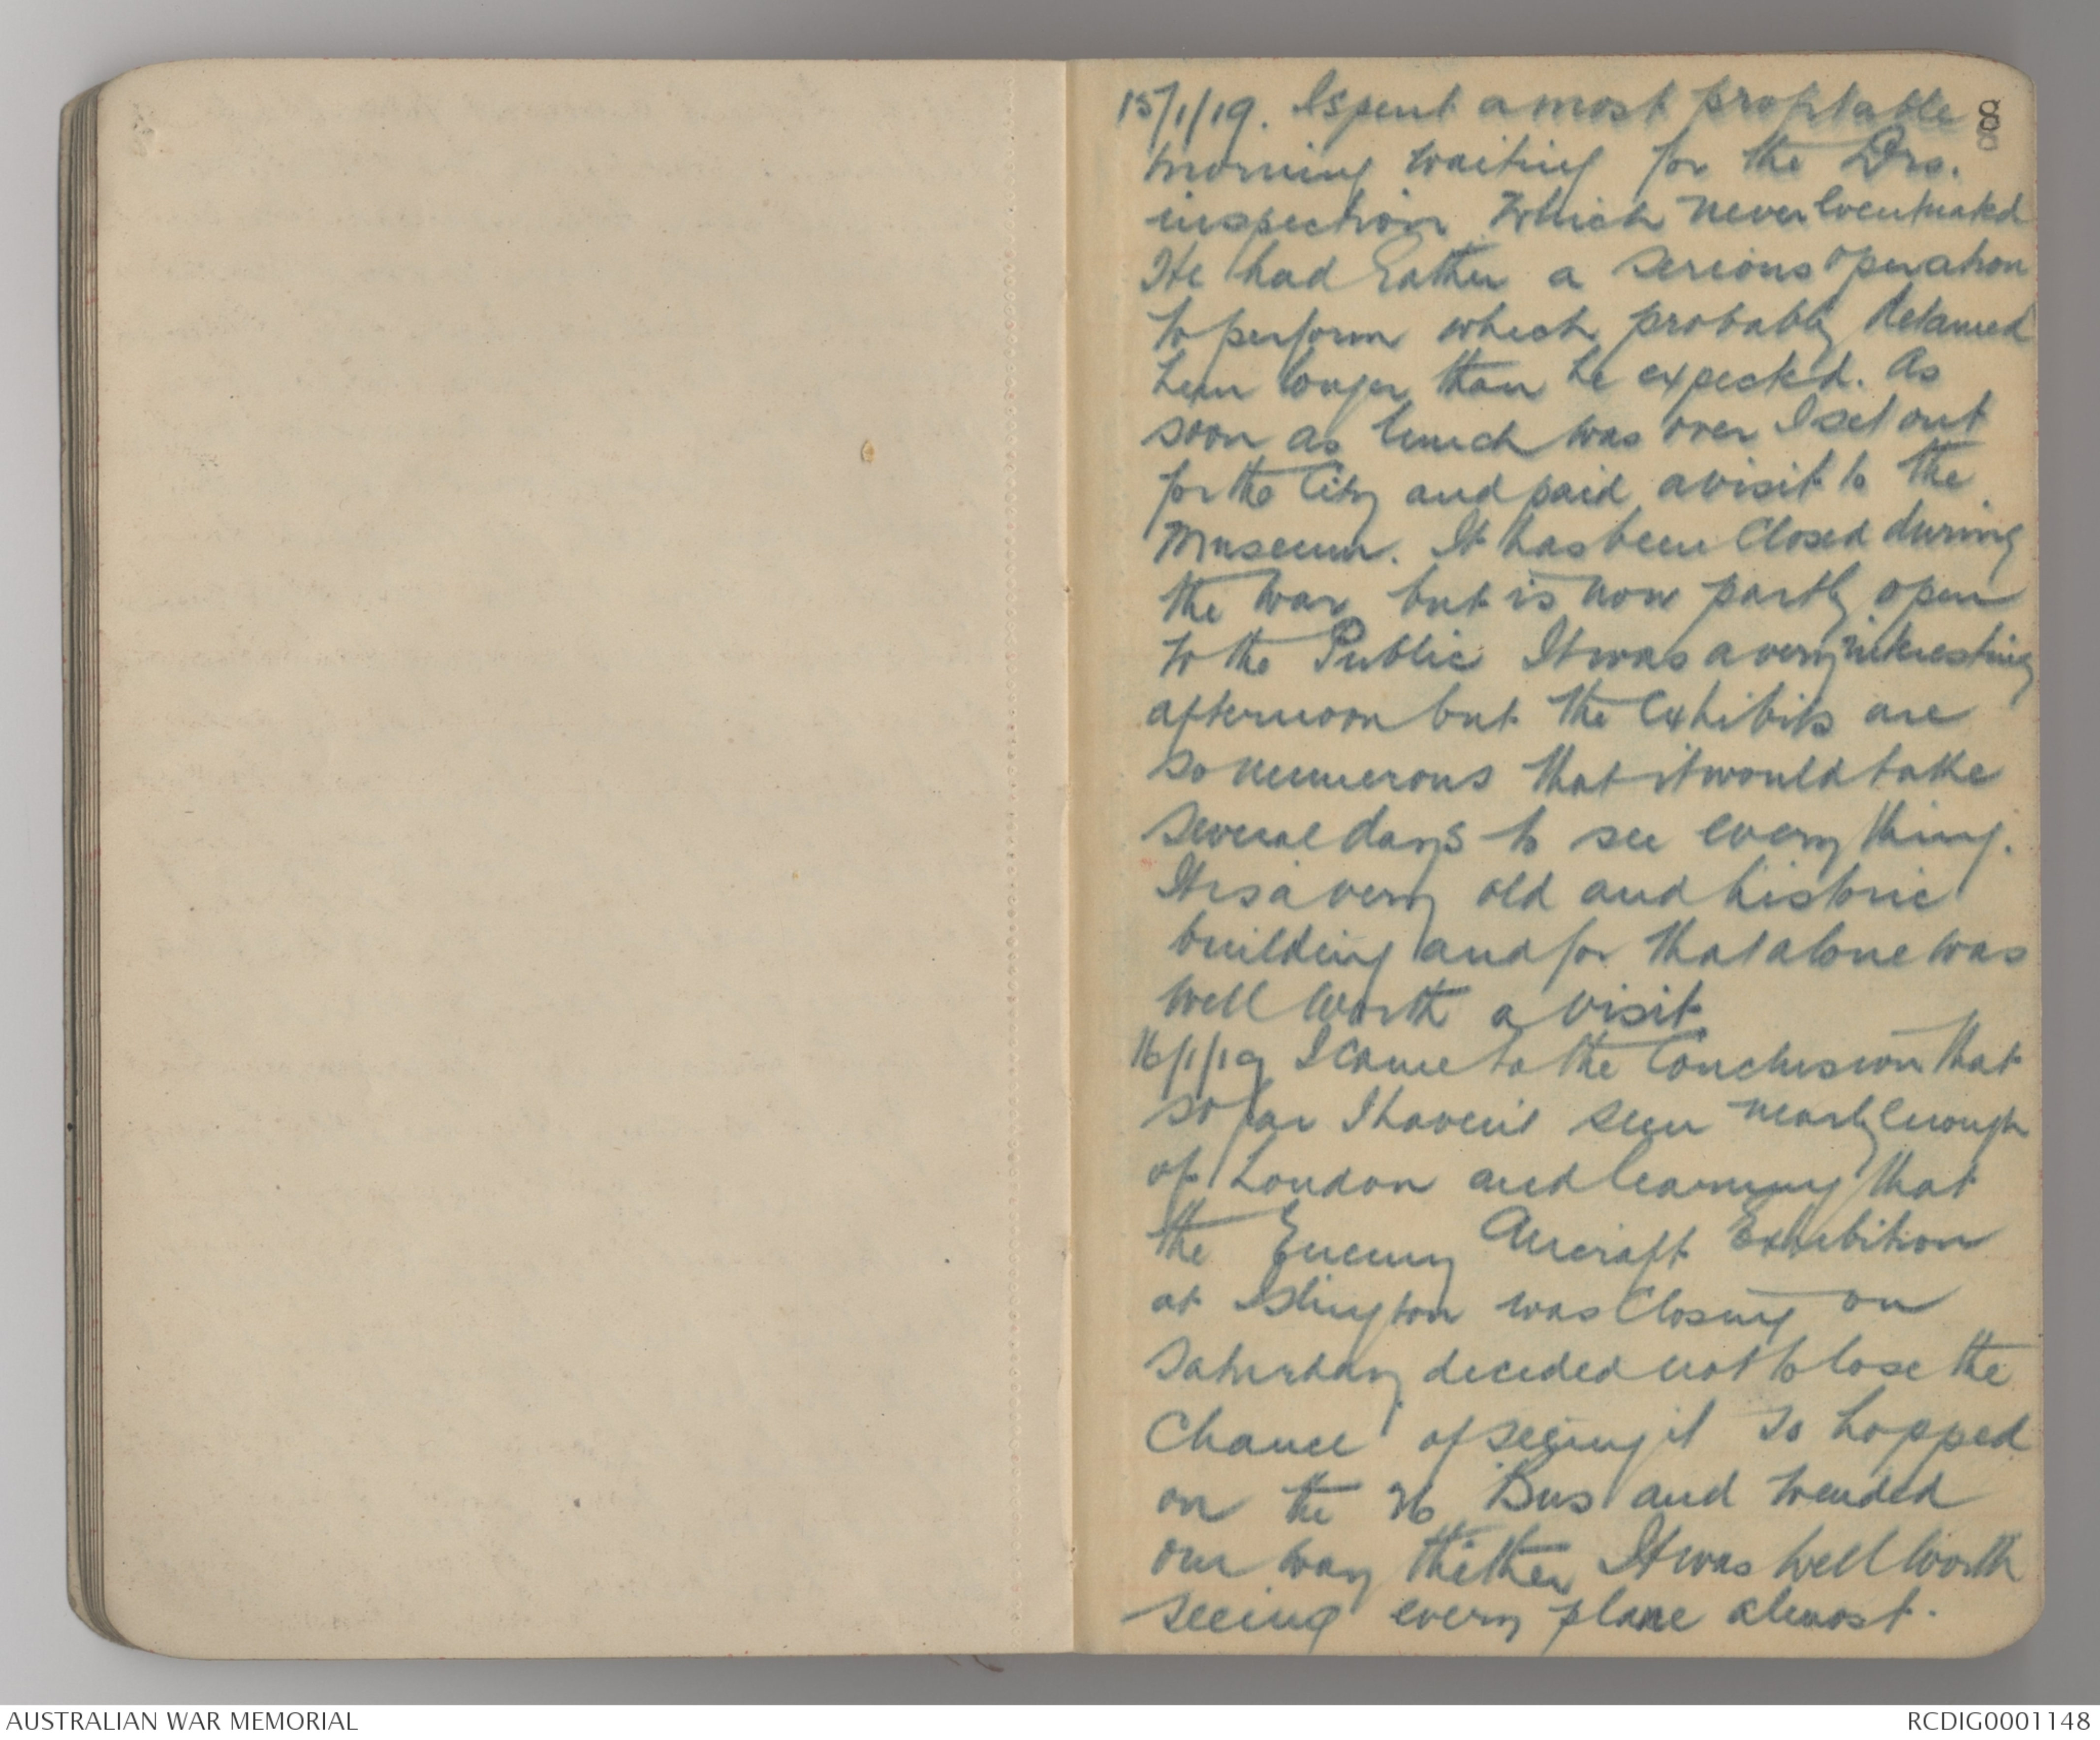 8
15/1/19. I spent a most profitable
morning waiting for the Drs.
inspection which never eventuated
He had rather a serious operation
to perform which probably detained
him longer than he expected. As
soon as lunch was over I set out
for the City and paid a visit to the
Museum. It has been closed during
the war but is now partly open
to the Public It was a very interesting
afternoon but the exhibits are
so numerous that it would take
several days to see every thing.
It is a very old and historic
building and for that alone was
well worth a visit.
16/1/19 I came to the conclusion that
so far I haven't seen nearly enough
of London and learning that
the Enemy Aircraft Exhibition
at Islington was closing on
Saturday decided not to lose the
chance of seeing it so hopped
on the Bus and wended
our way thither It was well worth
seeing every plane almost.
AUSTRALIAN WAR MEMORIAL
RCDIG0001148